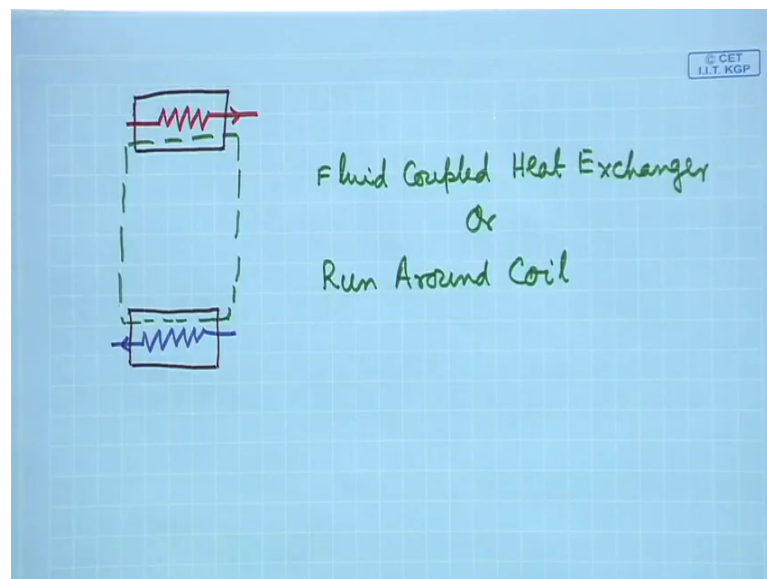 © CET
I.I.T. KGP
Fluid Coupled Heat Exchanger
Or
Run Around Coil